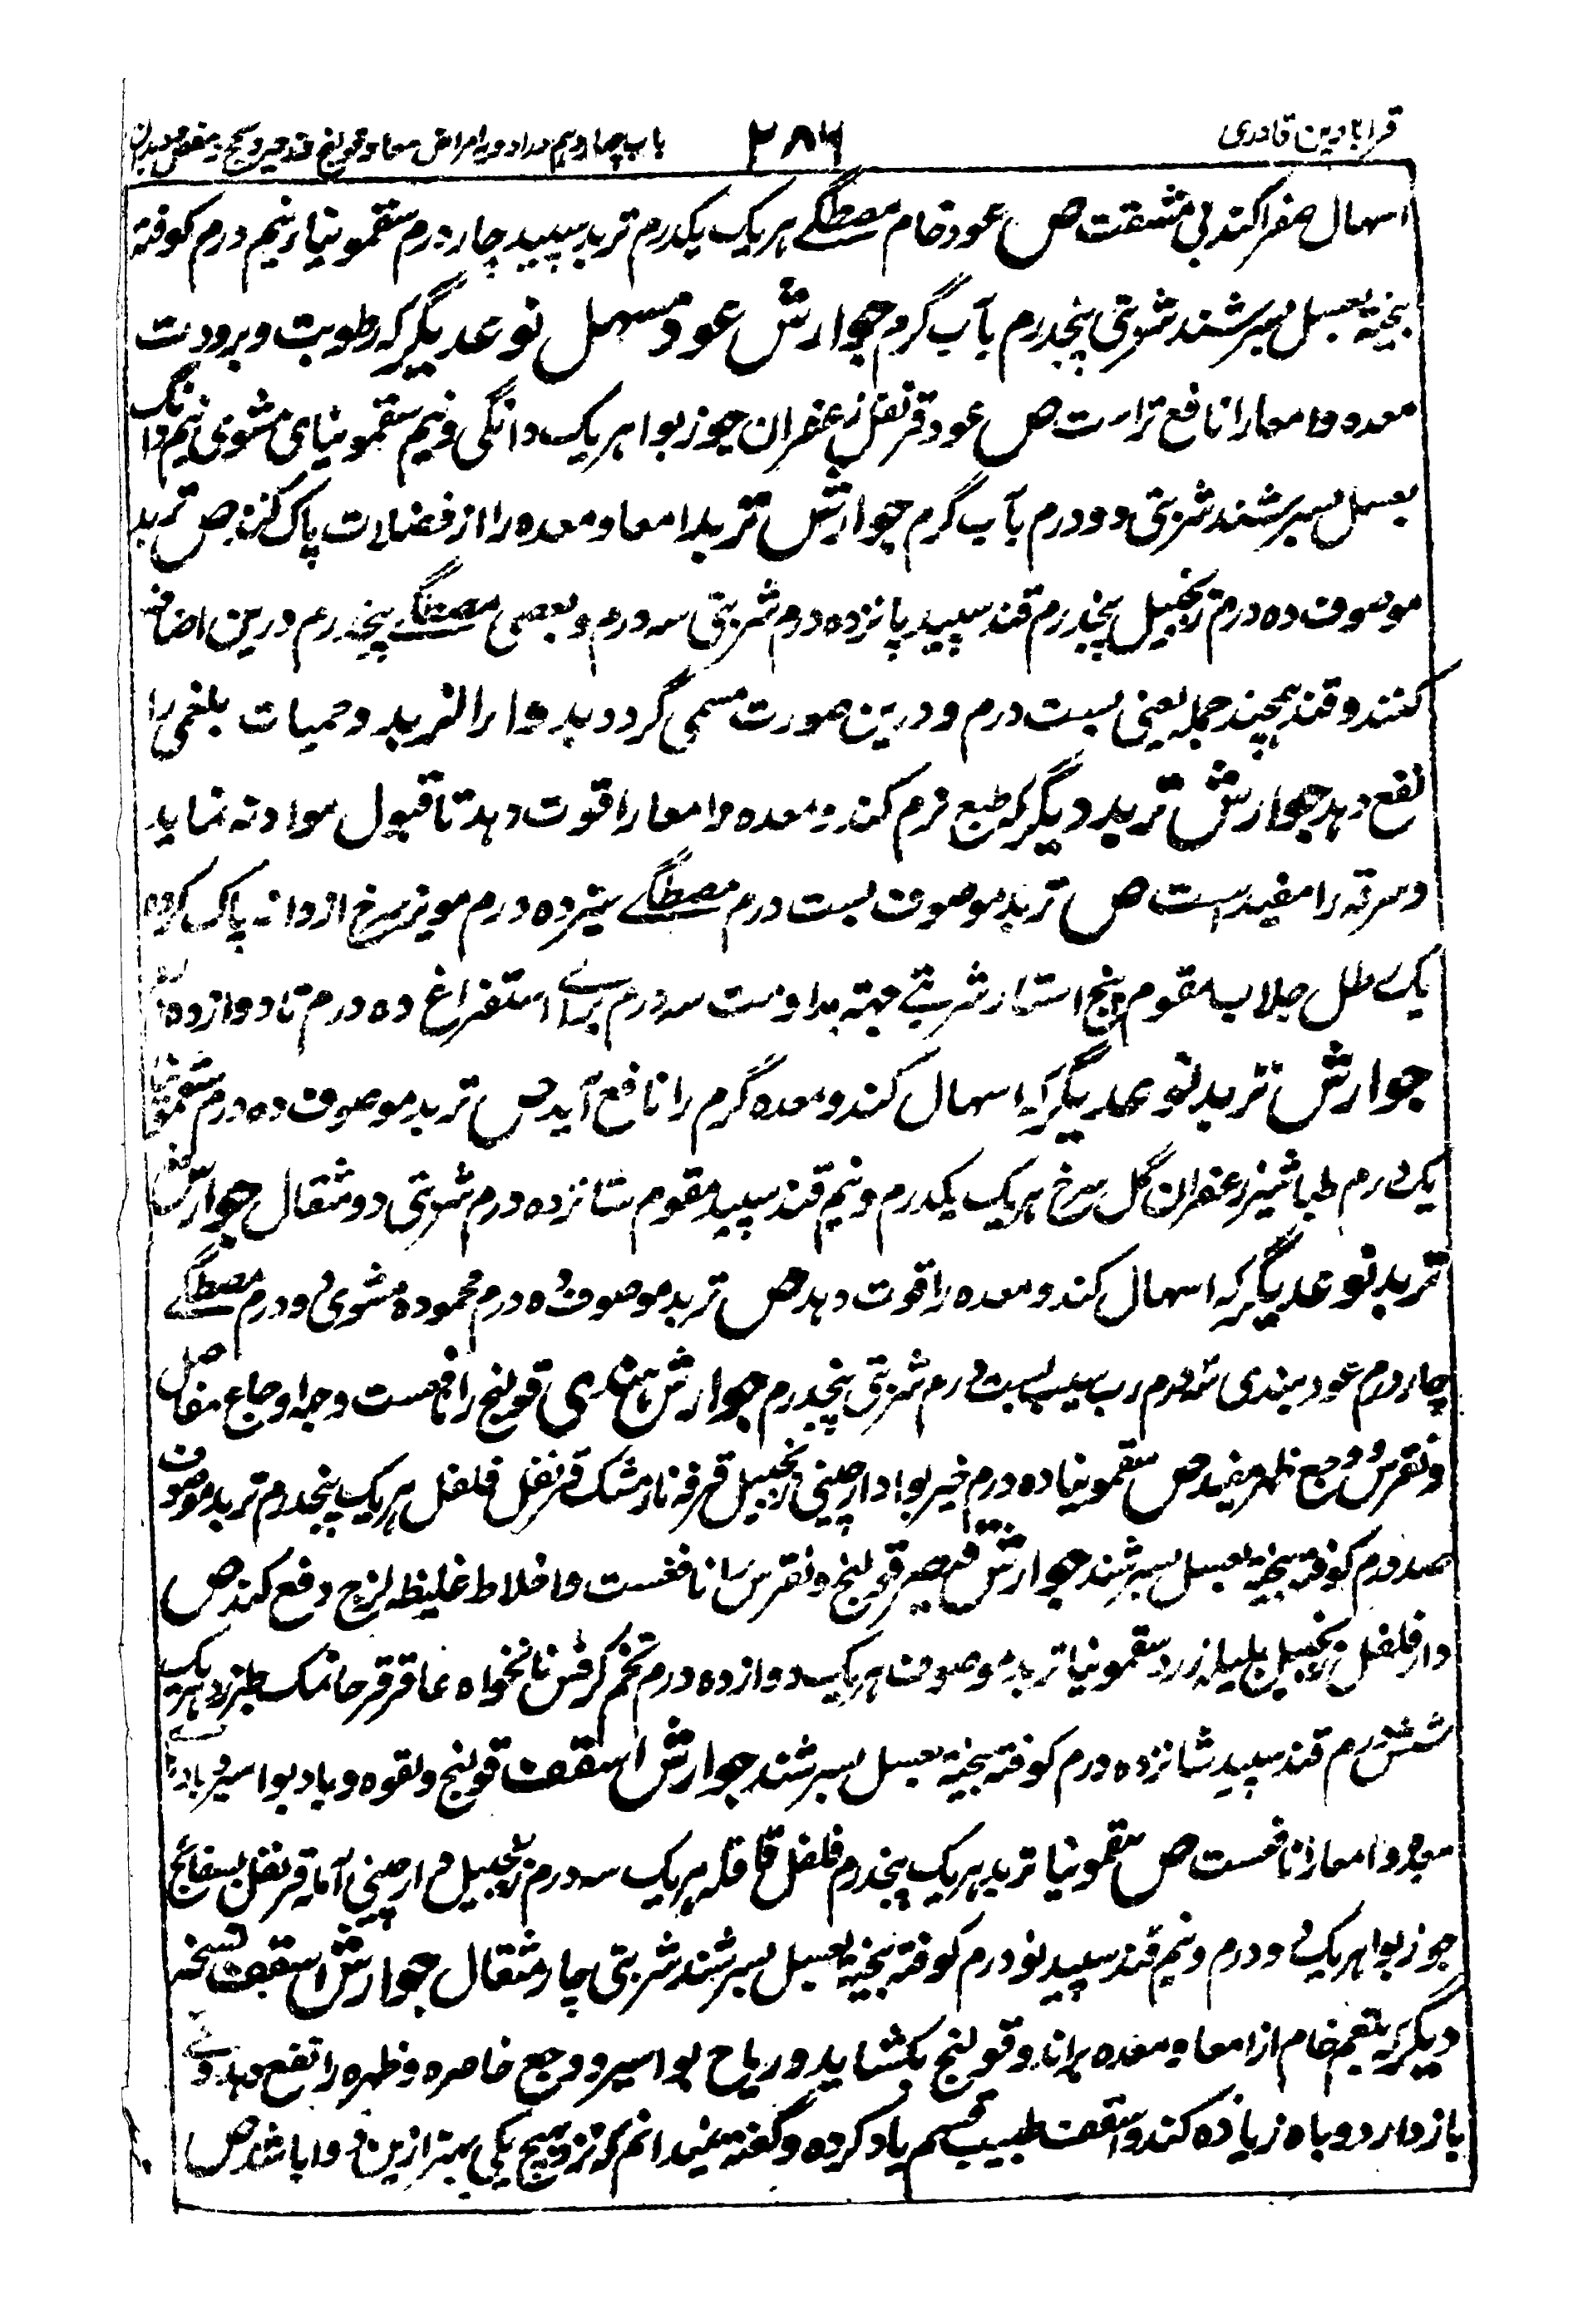 قرابادین قادری
۲۸۶
باب چهاردهم در ادویه امراض معا و قولنج و زحیر و سحج و مغص و دیدان
اسهال صفرا کند بی مشقت ص عود خام مصطگے هر یک یکدرم تربد سپید چار درم سقمونیا نیم درم کوفته
بیخته بعسل بسرشند شربتی پنجدرم بآب گرم جوارش عود مسهل نوعدیگر که رطوبت و برودت
معده و امعا را نافع تراست ص عود قرنفل زعفران جوز بوا هر یک دانگی و نیم سقمونیای مشوی نیم دانگ
بعسل بسرشند شربتی دو درم بآب گرم جوارش تربد امعا و معده را از فضلات پاک کند ص تربد
موصوف ده درم زنجبیل پنجدرم قند سپید پانزده درم شربتی سه درم و بعضی مصطگے پنجدرم درین اضافه
کنند و قند همچند جمله یعنی بست درم و درین صورت مسمی گردد بدواء التربد و حمیات بلغمی را
نفع دهد جوارش تربد دیگر که طبع نرم کند و معده و امعا را قوت دهد تا قبول مواد نه نماید
و سرفه را مفید است ص تربد موصوف بست درم مصطگے سیزده درم مویز سرخ از دانه پاک کرده
یک رطل جلاب مقوم پنج استار شربتے جهته مداومت سه درم براے استفراغ ده درم تا دوازده درم
جوارش تربد نوعدیگر که اسهال کند و معده گرم را نافع آید ص تربد موصوف ده درم سقمونیا
یکدرم طباشیر زعفران گل سرخ هر یک یکدرم و نیم قند سپید مقوم شانزده درم شربتی دو مثقال جوارش
تربد نوعدیگر که اسهال کند و معده را قوت دهد ص تربد موصوف ده درم محموده مشوی دو درم مصطگے
چار درم عود هندی سه درم رب سیب بست درم شربتی پنجدرم جوارش قولنج را نافعست و جمله اوجاع مفاصل
و نقرس و وجع ظهر مفید ص سقمونیا ده درم خیر بوا دارچینی زنجبیل قرفه نارمشک قرنفل فلفل هر یک پنجدرم تربد موصوف
صد درم کوفته بیخته بعسل بسرشند جوارش قیصر قولنج و نقرس را نافعست و اخلاط غلیظه لزج دفع کند ص
دارفلفل زنجبیل هلیله زرد سقمونیا تربد موصوف هر یک دوازده درم تخم کرفس نانخواه عاقرقرحا نمک طبرزد هر یک
شش درم قند سپید شانزده درم کوفته بیخته بعسل بسرشند جوارش اسقف قولنج و لقوه و باد بواسیر و بادهای
معده و امعا را نافعست ص سقمونیا تربد هر یک پنجدرم فلفل قاقله هر یک سه درم زنجبیل دارچینی آمله قرنفل بسفائج
جوز بوا هر یک دو درم و نیم قند سپید نود درم کوفته بیخته بعسل بسرشند شربتی چار مثقال جوارش اسقف نسخه
دیگر که بلغم خام از امعا و معده براند و قولنج بکشاید و ریاح بواسیر و وجع خاصره و ظهر را نفع دهد و قے
باز دارد و باه زیاده کند و اسقف طبیب قسم یاد کرده و گفته نمیدانم که نزد هیچ یکی بهتر ازین دوا باشد ص